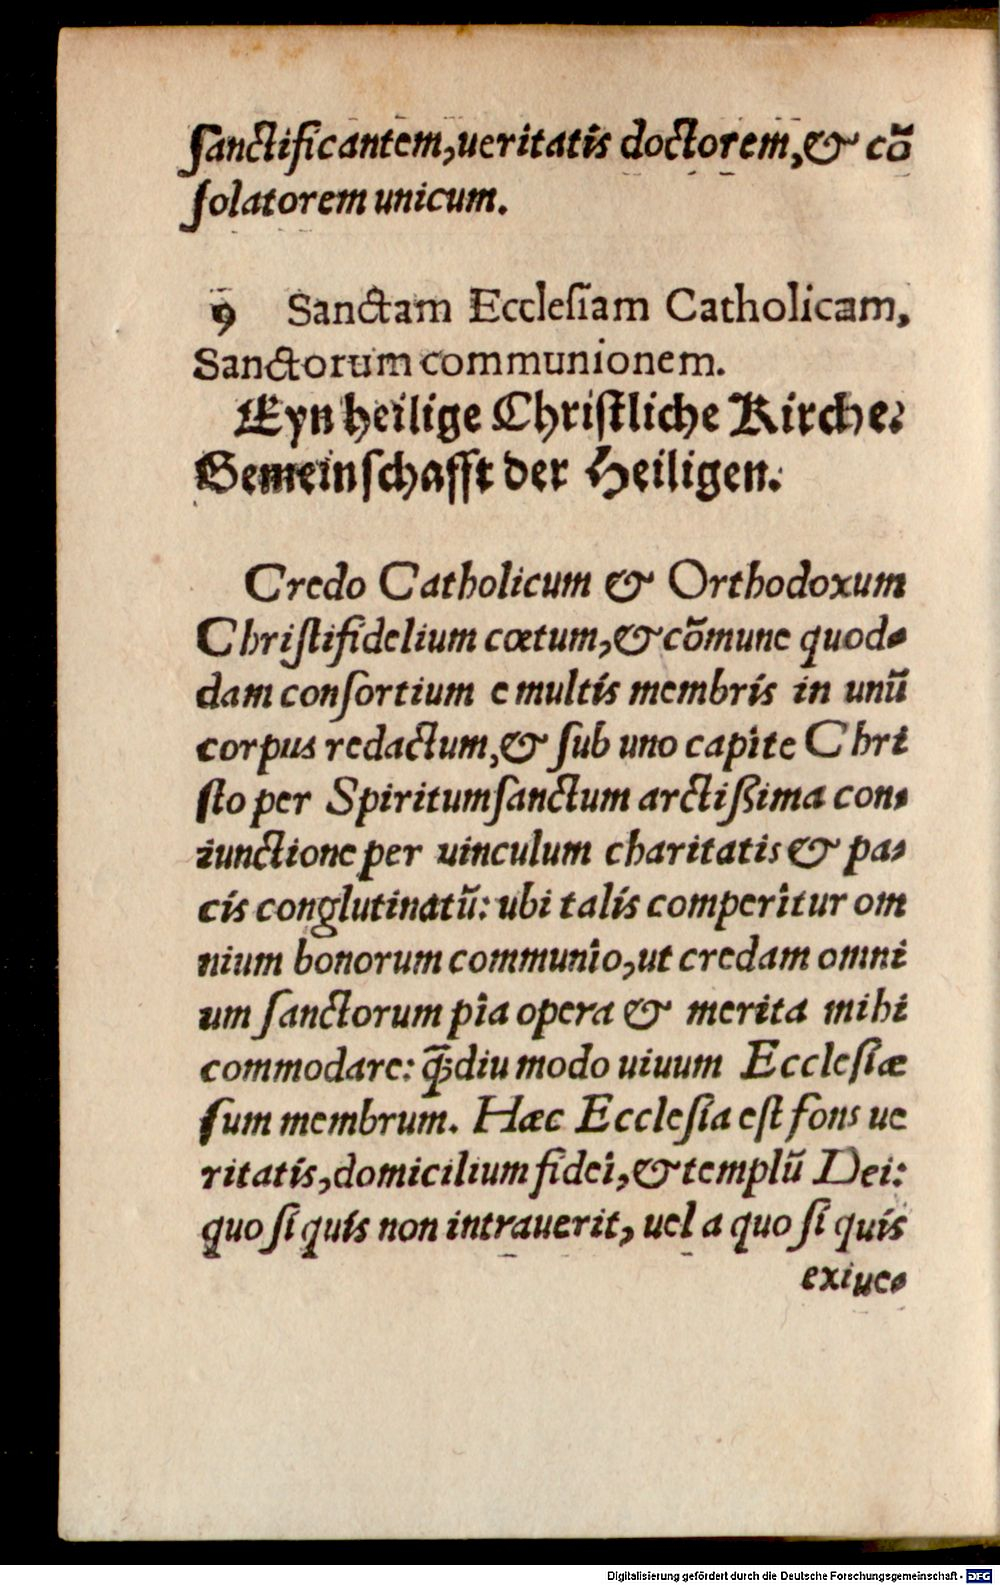 ſanctificantem, ueritatis doctorem, & cõ
ſolatorem unicum.
9 Sanctam Eccleſiam Catholicam,
Sanctorum communionem.
Eyn heilige Chriſtliche Kirche.
Gemeinſchafft der Heiligen.
Credo Catholicum & Orthodoxum
Chriſtifidelium cœtum, & cõmune quod-
dam conſortium e multis membris in unũ
corpus redactum, & ſub uno capite Chri
ſto per Spiritumſanctum arctiſsima con-
iunctione per uinculum charitatis & pa-
cis conglutinatũ: ubi talis comperitur om
nium bonorum communio, ut credam omni
um ſanctorum pia opera & merita mihi
commodare: q̃diu modo uiuum Eccleſiæ
ſum membrum. Hæc Eccleſia eſt fons ue
ritatis, domicilium fidei, & templũ Dei:
quo ſi quis non intrauerit, uel a quo ſi quis
exiue-
Digitalisierung gefördert durch die Deutsche Forschungsgemeinschaft - DFG